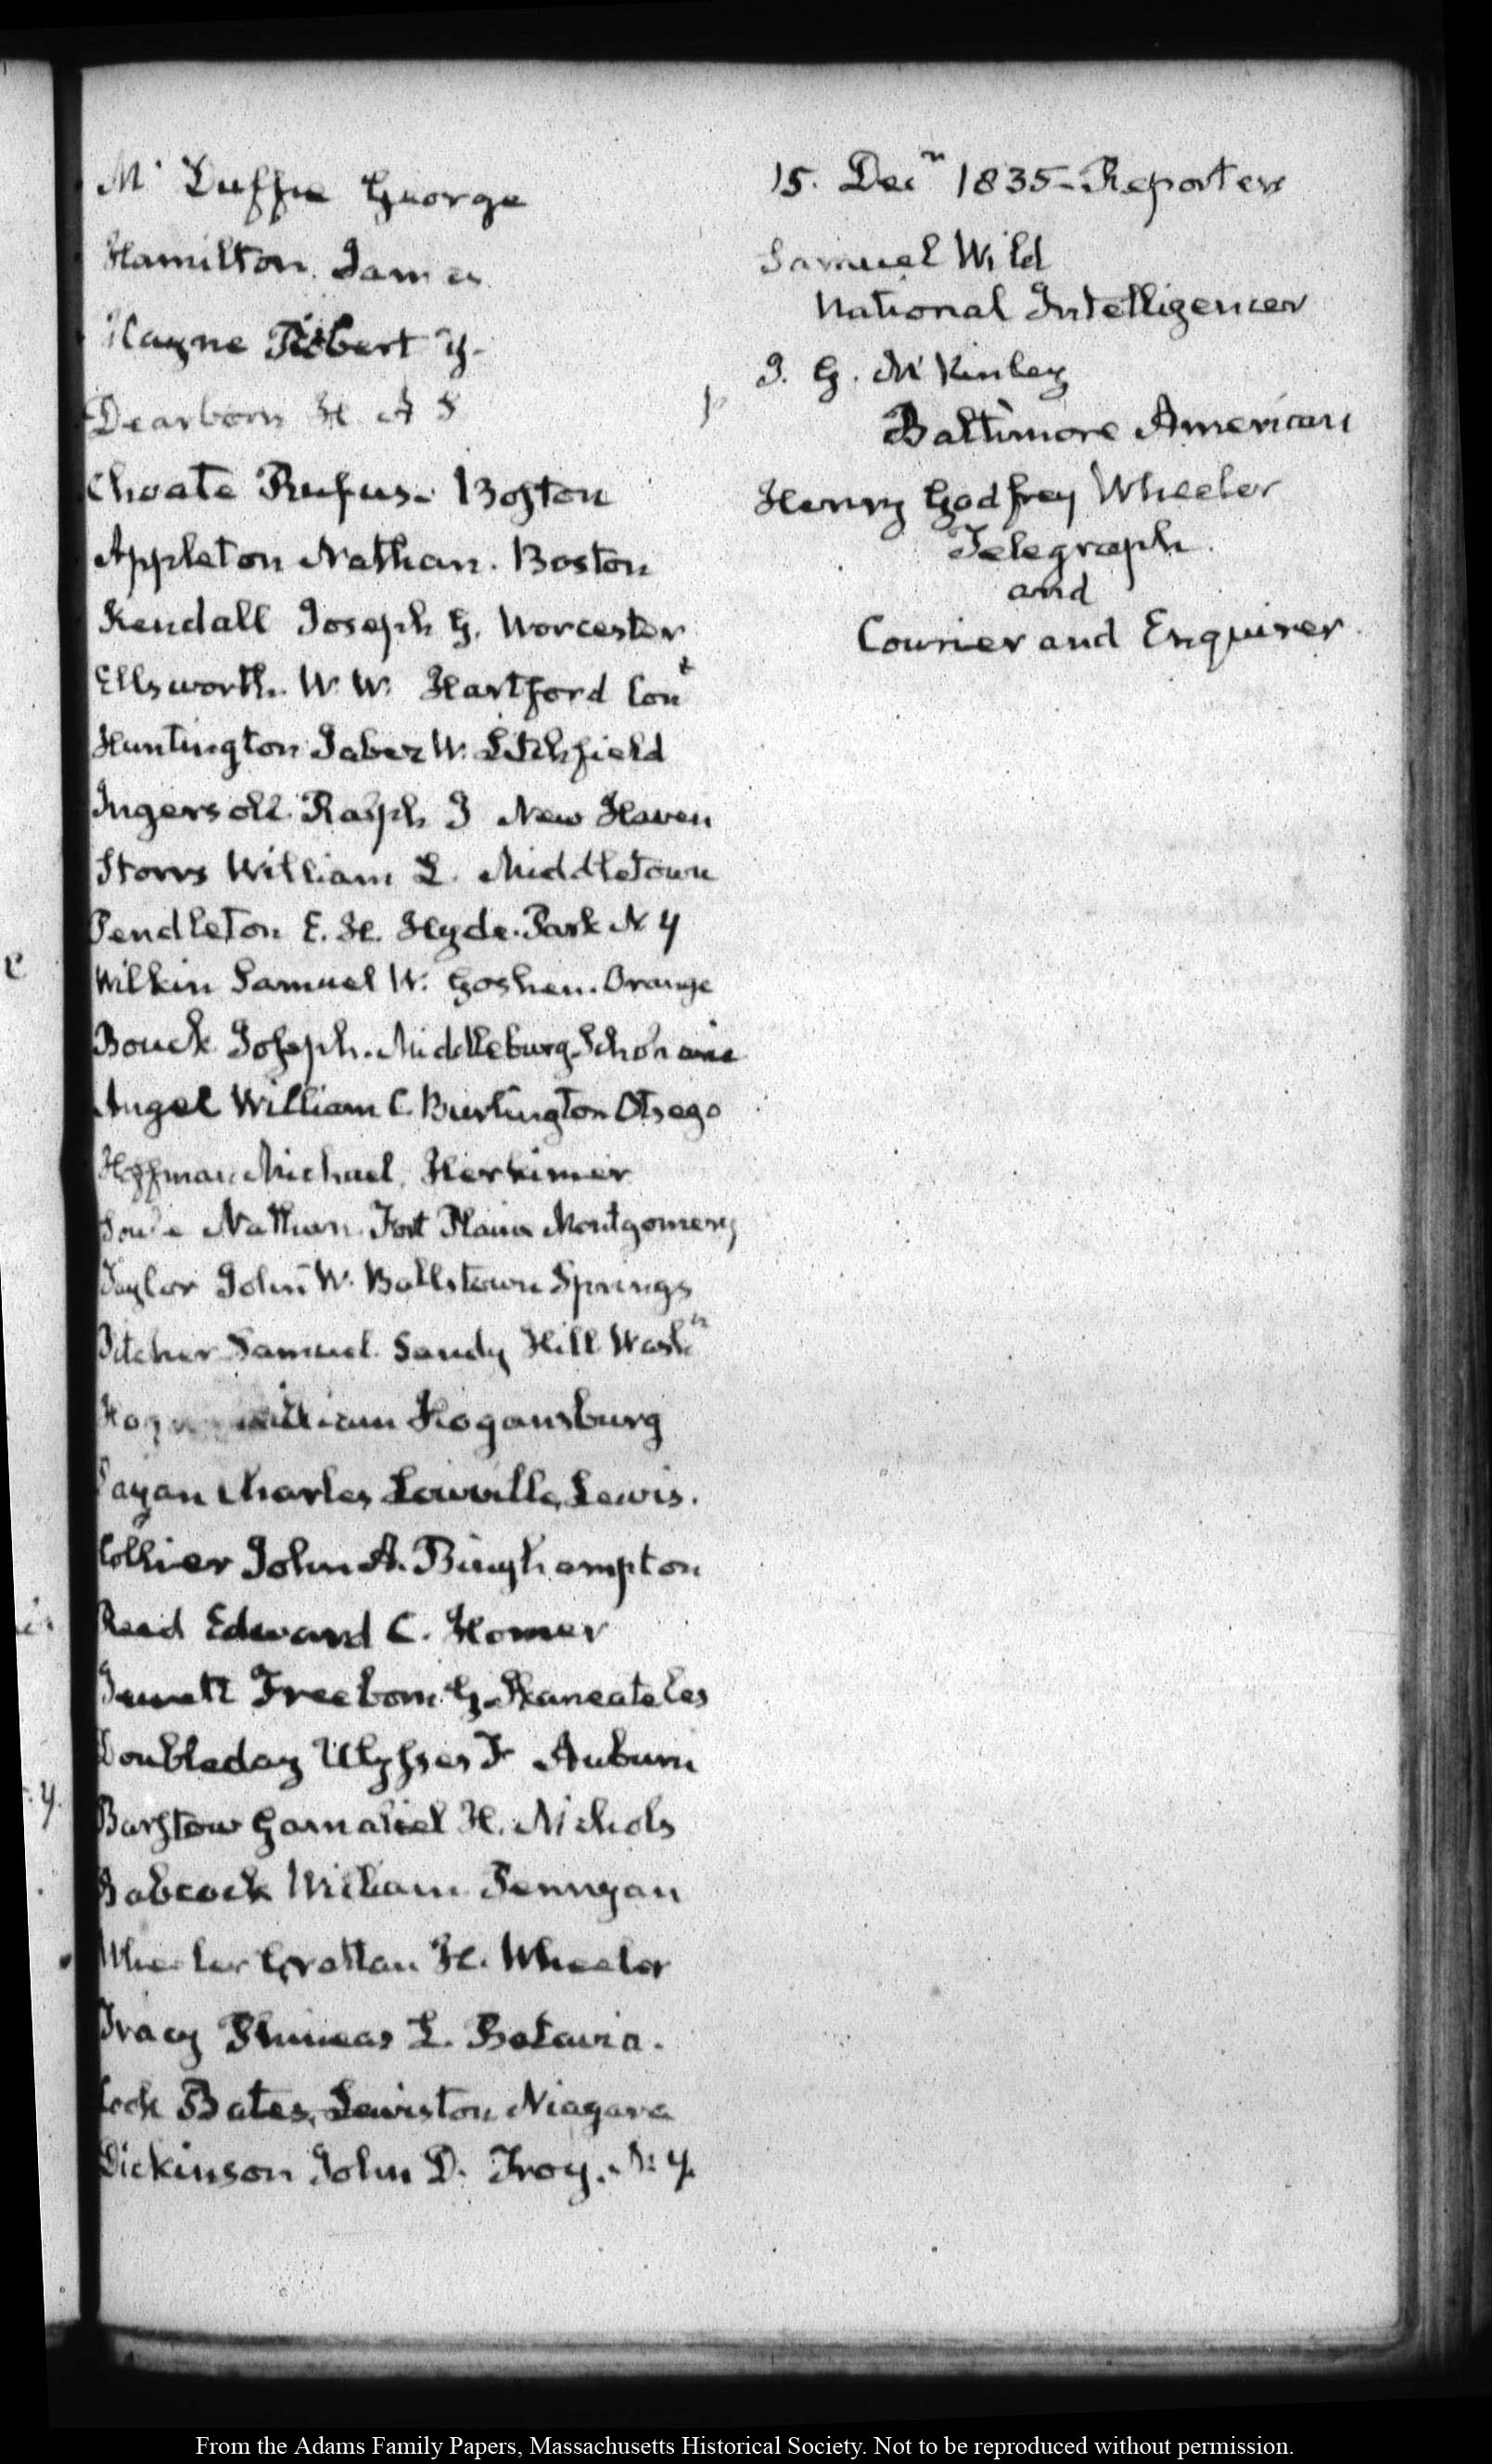 Mc Duffie George
Hamilton James
Hayne Robert Y.
Dearborn H A S
Choate Rufus. Boston
Appleton Nathan. Boston
Kendall Joseph G. Worcester
Ellsworth. W. W. Hartford Cont
Huntington Jabez W. Litchfield
Ingersoll. Ralph I New Haven
Storrs William L. Middletown
Pendleton E. H. Hyde-Park N. Y
Wilkin Samuel W. Goshen. Orange
Bouck Joseph. Middleburg. Schoharie
Angel William C. Burlington Otsego
Hoffman Michael. Herkimer
Soule Nathan. Fort Plains Montgomery
Taylor John W. Ballstown Springs
Pitcher Samuel. Sandy Hill Washn
William Hogansburg
Dayan Charles, Lowville, Lewis.
Collier John A. Binghampton
Reed Edward C. Homer
Jewett Freeborn G. Skaneateles
Doubleday Ulysses F Auburn
Barstow Gamaliel H. Nichols
Babcock William Pennyan
Wheeler Grattan H. Wheeler
Tracy Phineas L. Batavia.
Cook Bates, Lewiston, Niagara
Dickinson John D. Troy. N. Y.
15. Decr 1835 - Reporters
Samuel Wild
National Intelligencer
J. G. McKinley
Baltimore American
Henry Godfrey Wheeler
Telegraph.
and
Courier and Enquirer.
From the Adams Family Papers, Massachusetts Historical Society. Not to be reproduced without permission.